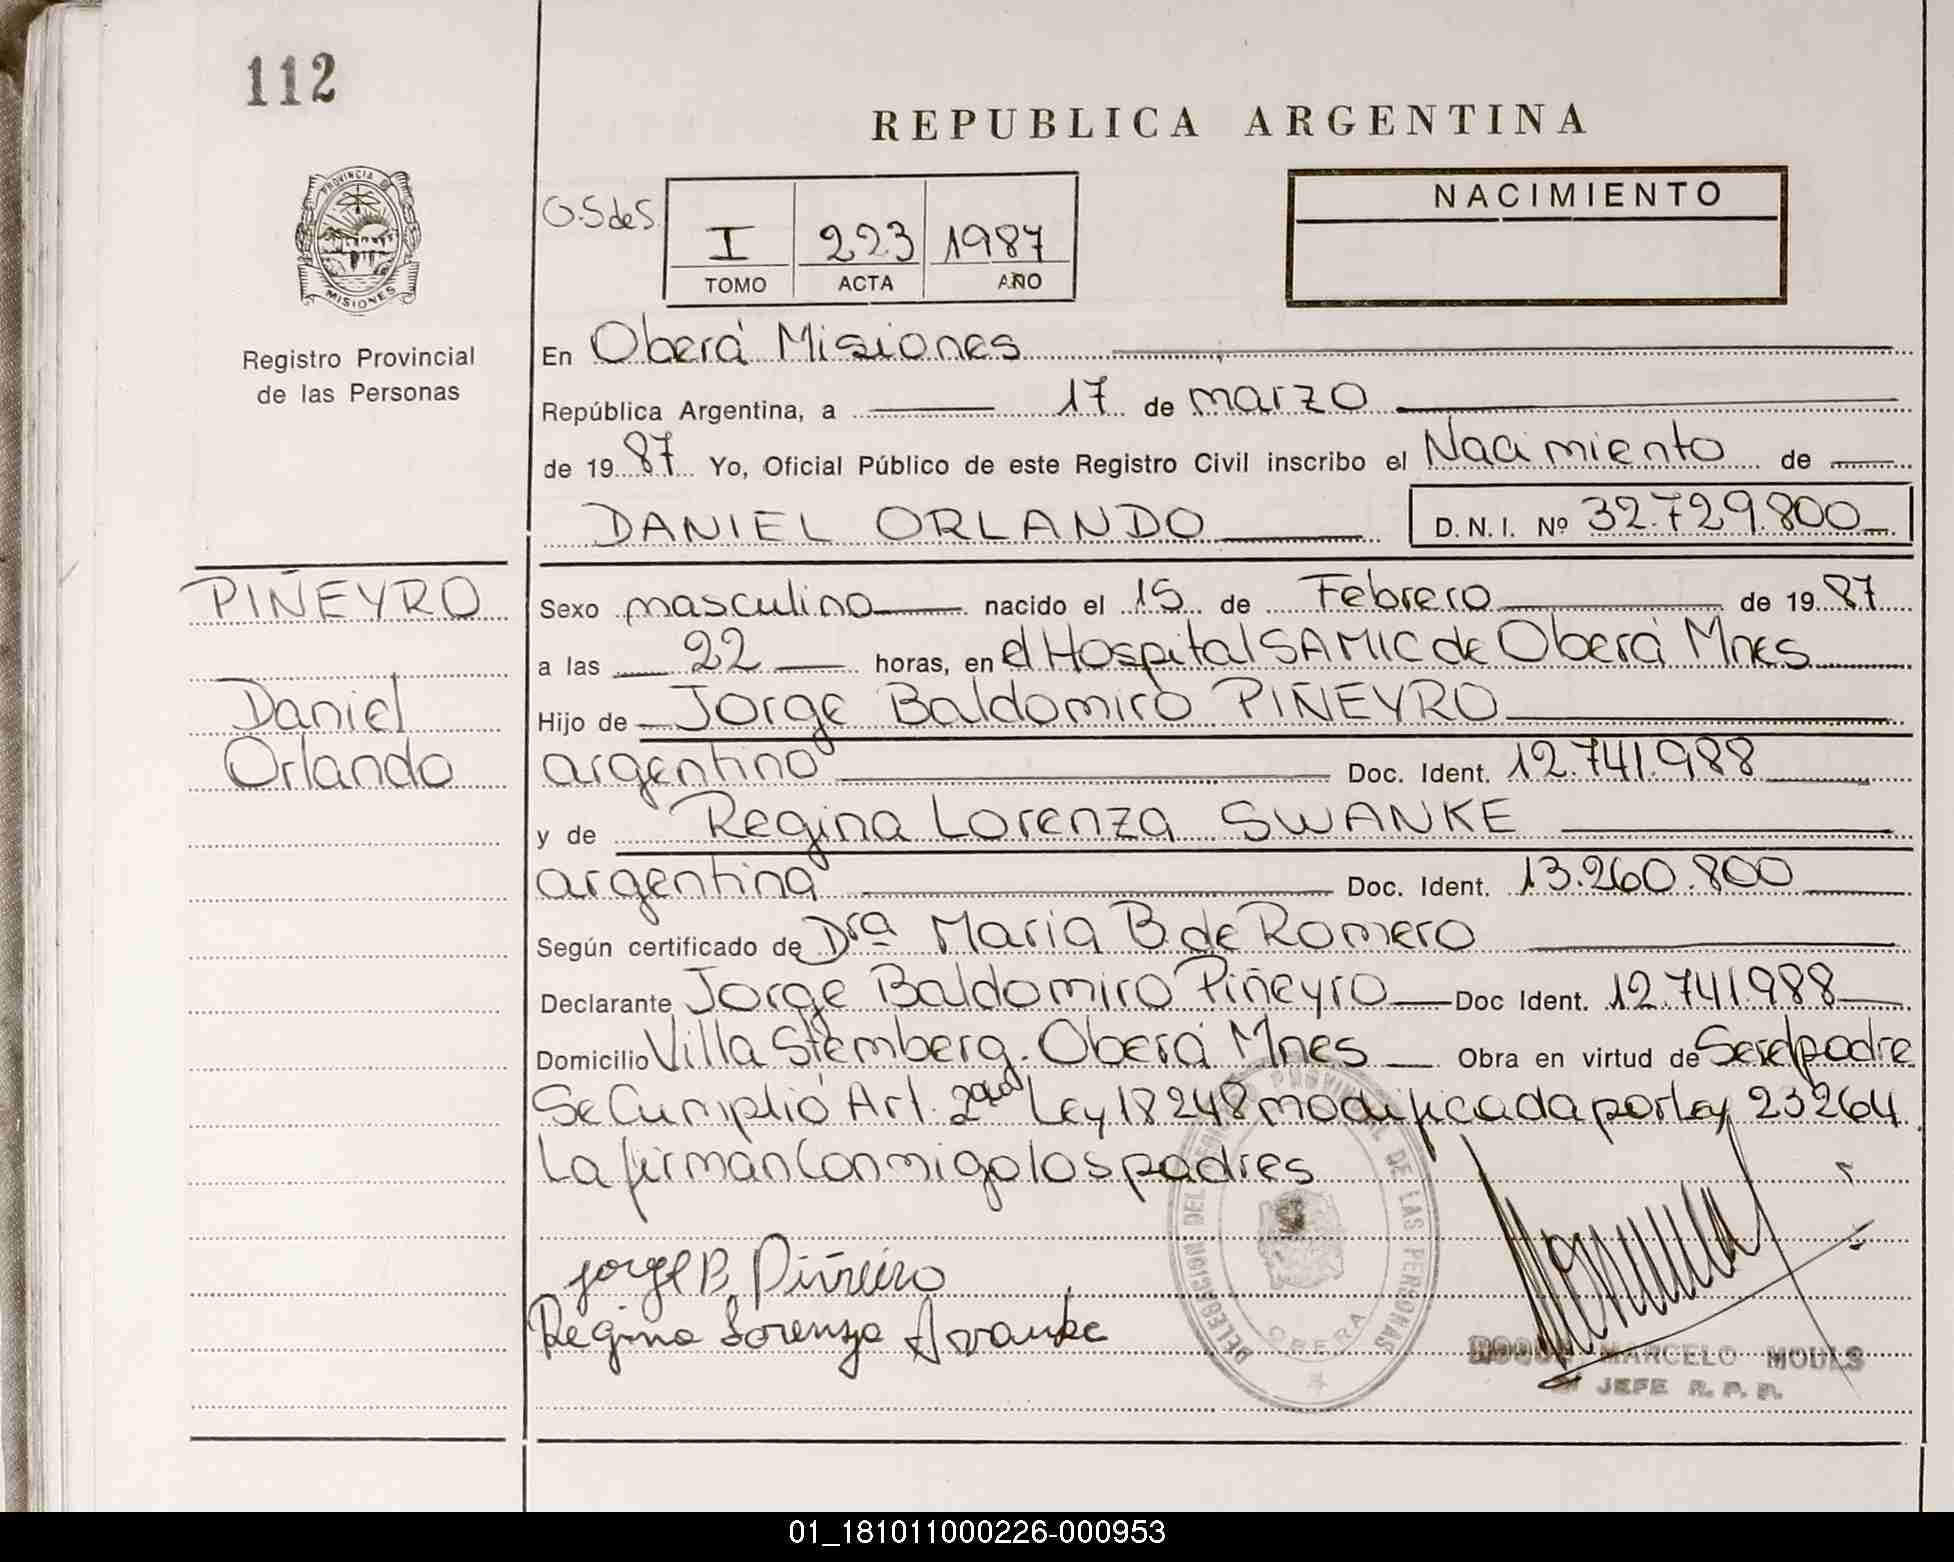 112
REPUBLICA ARGENTINA
PROVINCIA DE
MISIONES
Registro Provincial
de las Personas
G.SdeS.
I 223 1987
TOMO ACTA AÑO
NACIMIENTO
En Oberá Misiones
República Argentina, a 17 de marzo
de 1987 Yo, Oficial Público de este Registro Civil inscribo el Nacimiento de
DANIEL ORLANDO D.N.I. Nº 32.729.800
PIÑEYRO
Daniel
Orlando
Sexo masculino nacido el 15 de Febrero de 1987
a las 22 horas, en el Hospital SAMIC de Oberá Mnes
Hijo de Jorge Baldomiro PIÑEYRO
argentino Doc. Ident. 12.741.988
y de Regina Lorenza SWANKE
argentina Doc. Ident. 13.260.800
Según certificado de Dra Maria B. de Romero
Declarante Jorge Baldomiro Piñeyro Doc Ident. 12.741.988
Domicilio Villa Stemberg. Oberá Mnes Obra en virtud de Ser el padre
Se Cumplió Art. 2do Ley 18248 modificada por Ley 23264.
La firman Conmigo los padres
Jorge B Piñeiro
Regina Lorenza Swanke
DELEGACION DEL REGISTRO PROVINCIAL DE LAS PERSONAS
OBERA
MARCELO MOULS
JEFE R. P. P.
01_181011000226-000953